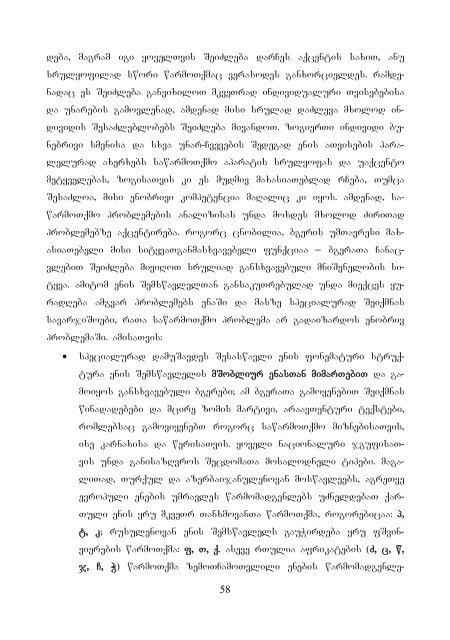 დება, მაგრამ იგი ყოველთვის შეიძლება დარჩეს აქცენტის სახით, ანუ
სრულყოფილად სწორი წარმოთქმაც ვერასოდეს განხორციელდეს. რამდე-
ნადაც ეს შეიძლება განვიხილოთ მკვეთრად ინდივიდუალური თვისებებისა
და უნარების გამოვლენად, ამდენად მისი სრულად დაძლევა მხოლოდ ინ-
დივიდის შესაძლებლობებს შეიძლება მივანდოთ. ზოგიერთი ინდივიდი ბუ-
ნებრივი სმენისა და სხვა უნარ-ჩვევების შედეგად ენის ათვისების პარა-
ლელურად ახერხებს საწარმოთქმო აპარატის სრულყოფას და უაქცენტო
მეტყველებას, ზოგისათვის კი ეს მუდმივ მახასიათებლად რჩება, თუმცა
შესაძლოა, მისი ენობრივი კომპეტენცია მაღალიც კი იყოს. ამდენად, სა-
წარმოთქმო პრობლემების ანალიზისას უნდა მოხდეს მხოლოდ ძირითად
პრობლემებზე აქცენტირება. როგორც ცნობილია, ბგერის უმთავრესი მახ-
ასიათებელი მისი სიტყვათგანმასხვავებელი ფუნქციაა – ბგერათა ჩანაც-
ვლებით შეიძლება მივიღოთ სრულიად განსხვავებული მნიშვნელობის სი-
ტყვა. ამიტომ ენის შემსწავლელთან განსაკუთრებულად უნდა მიექცეს ყუ-
რადღება ამგვარ პრობლემებს ენაში და მასზე სპეციალურად შეიქმნას
სავარჯიშოები, რათა საწარმოთქმო პრობლემა არ გადაიზარდოს ენობრივ
პრობლემაში. ამისათვის:
• სპეციალურად დამუშავდეს შესასწავლი ენის ფონემატური სტრუქ-
ტურა ენის შემსწავლელის მშობლიურ ენასთან მიმართებით და გა-
მოიყოს განსხვავებული ბგერები; ამ ბგერათა გამოყენებით შეიქმნას
წინადადებები და მცირე ზომის მარტივი, არაავთენტური ტექსტები,
რომლებსაც გამოვიყენებთ როგორც საწარმოთქმო მიზნებისათვის,
ისე კარნახისა და წერისათვის. ყოველი ნაციონალური ჯგუფისათ-
ვის უნდა განისაზღვროს შეცდომათა მოსალოდნელი ტიპები. მაგა-
ლითად, თურქულ და აზერბაიჯანულენოვან მოსწავლეებს, აგრეთვე
ევროპული ენების უმრავლეს წარმომადგენლებს უძნელდებათ ქარ-
თული ენის ყრუ მკვეთრ თანხმოვანთა წარმოთქმა, როგორებიცაა: პ,
ტ, კ; რუსულენოვან ენის შემსწავლელს გაუჭირდება ყრუ ფშვინ-
ვიერების წარმოთქმა: ფ, თ, ქ. ასევე რთულია აფრიკატების (ძ, ც, წ,
ჯ, ჩ, ჭ) წარმოთქმა ზემოთჩამოთვლილი ენების წარმომადგენლე-
58